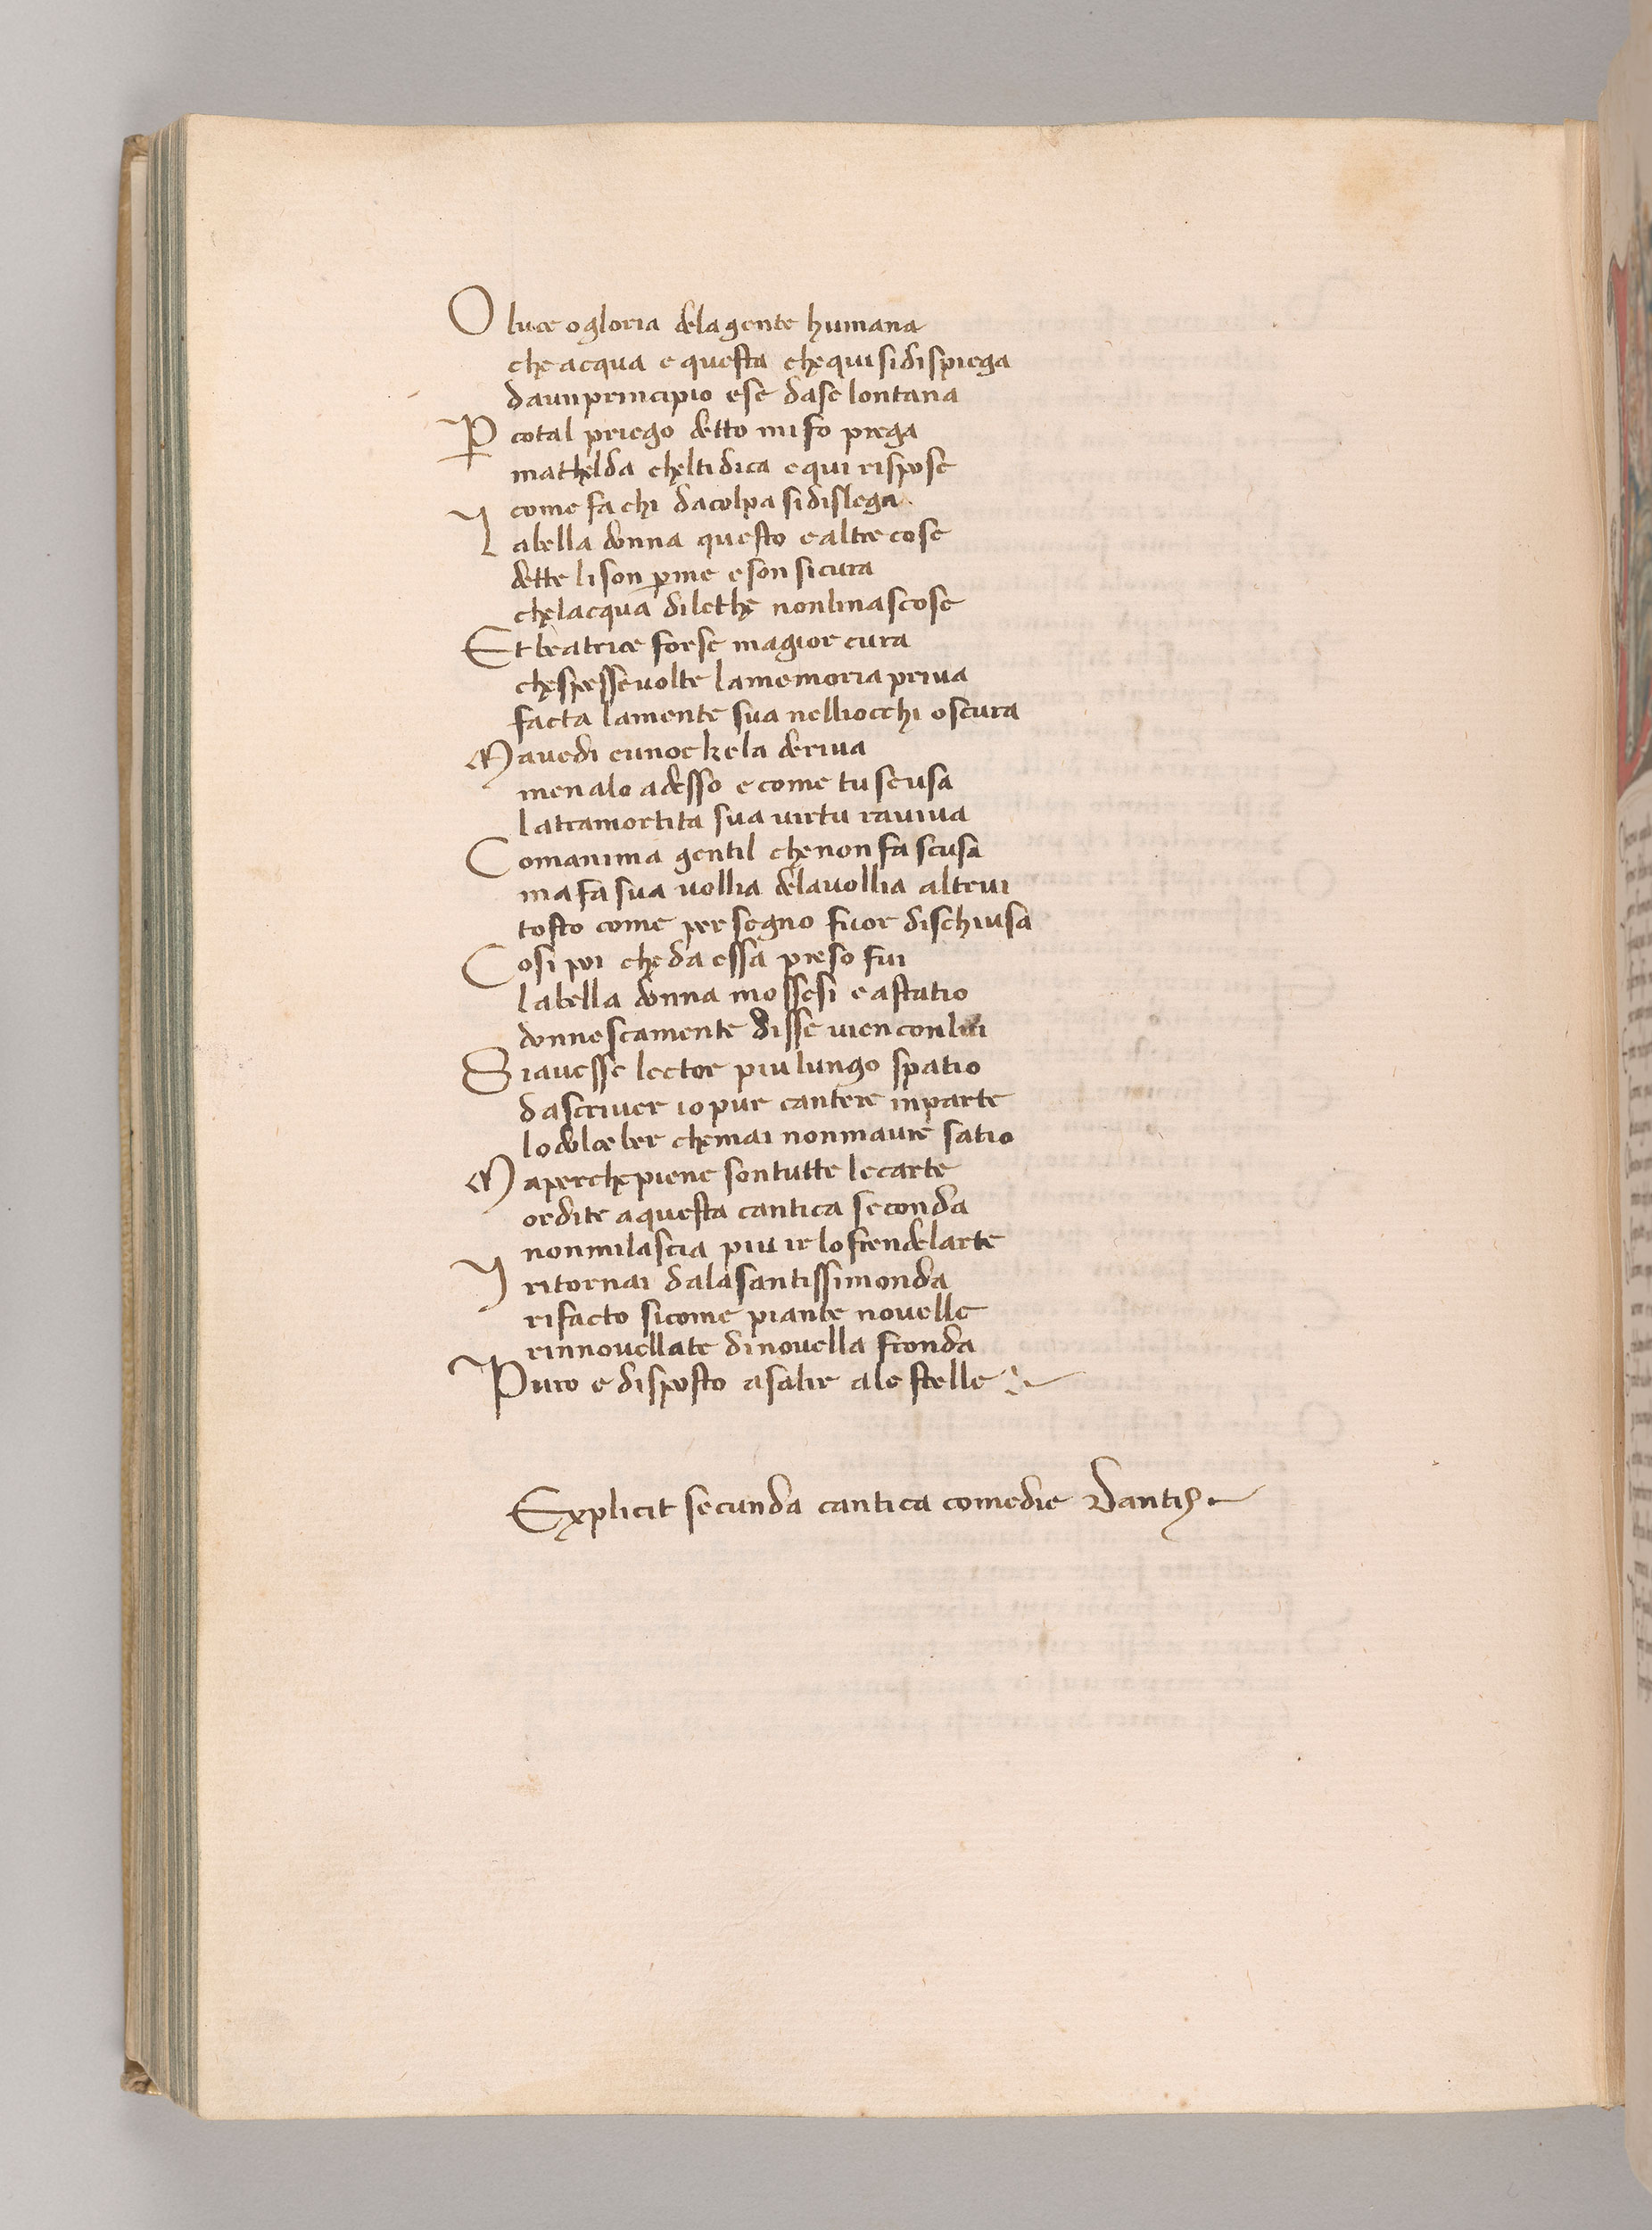 O luce o gloria dela gente humana
che acqua e questa che qui si dispiega
da un principio e se da se lontana
P cotal priego detto mi fo prega
mathelda chelti dica e qui rispose
come fa chi da colpa si dislega
La bella donna questo e altre cose
dette li son pme e son sicura
che lacqua di lethe non li nascose
Et beatrice forse magior cura
che spesse volte la memoria priva
facta la mente sua nelli occhi oscura
Ma vedi eunoe ke la deriva
menalo adesso e come tu se usa
la tramortita sua virtu raviva
Com anima gentil che non fa scusa
ma fa sua vollia dela vollia altrui
tosto come per segno fuor dischiusa
Cosi poi che da essa preso fui
la bella donna mossesi e a statio
donnescamente disse vien con lui
S iavesse lector piu lungo spatio
da scriver io pur cantere in parte
lo dolce ber che mai non mavre satio
Ma perche piene son tutte le carte
ordite a questa cantica seconda
non mi lascia piu ir lo fren de larte
I ritornai da la santissimonda
rifacto si come piante novelle
rinnovellate di novella fronda
Puro e disposto a salir a le stelle
Explicit secunda cantica comedie Dantis